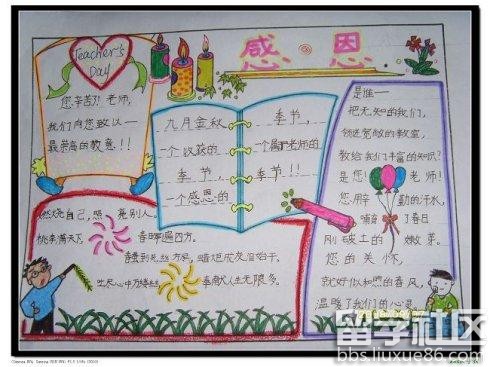 Teacher's
Day
感恩
您辛苦了！老师，
我们向您致以一
最崇高的敬意！！
九月金秋
一个收获的
季节，
一个感恩的
季节，
一个属于老师的
季节！！
是谁一
把无知的我们，
领进宽敞的教室，
教给我们丰富的知识？
是您！老师！
您用辛勤的汗水，
哺育了春日
刚破土的嫩芽。
您的关怀，
就好似和煦的春风，
温暖了我们的心灵。
燃烧自己，照亮别人。
桃李满天下，春晖遍四方。
春蚕到死丝方尽，蜡炬成灰泪始干。
奉献人生无限多。
留学社区
bbs.liuxue86.com